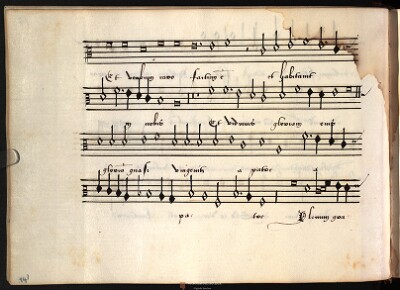 Et verbum caro factum ē et habitavit
in nobis Et vidimus gloriam eius
gloriā quasi unigeniti a patre a
pa tre Plenum gra